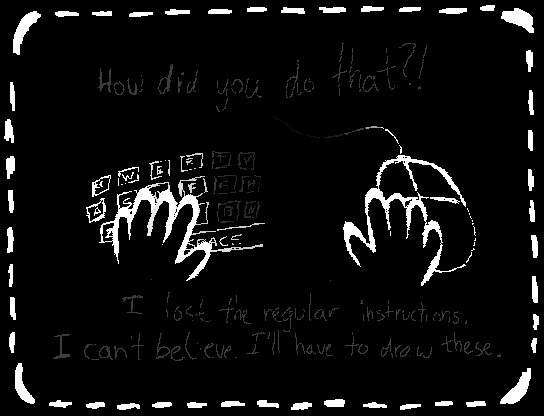 How did you do that?!
W E R T Y
A S F
SPACE
I lost the regular instructions.
I can't believe. I'll have to draw these.